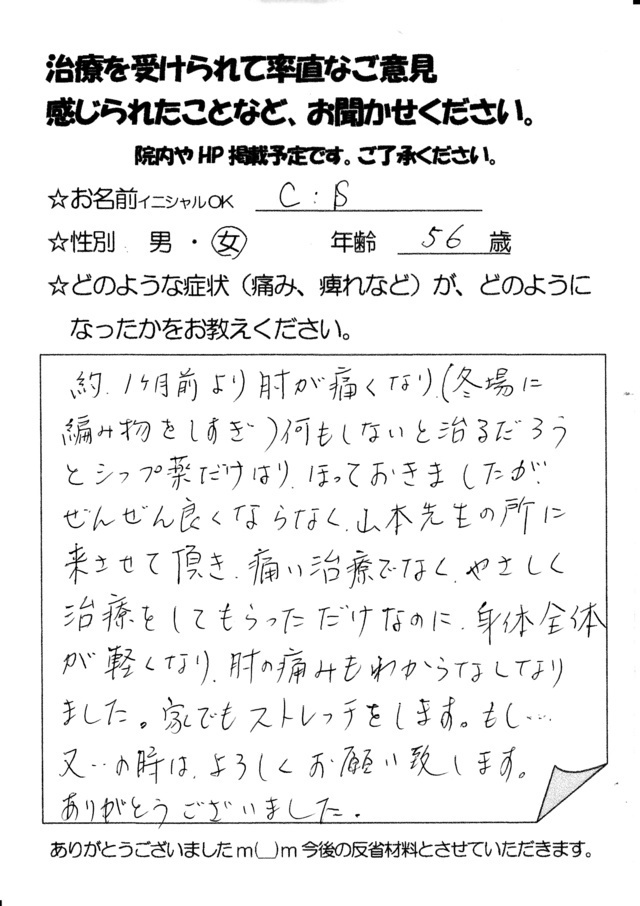 治療を受けられて率直なご意見
感じられたことなど、お聞かせください。
院内やHP掲載予定です。ご了承ください。
☆お名前イニシャルOK C:S
☆性別 男・女 年齢 56 歳
☆どのような症状（痛み、痺れなど）が、どのように
なったかをお教えください。
約、1ヶ月前より肘が痛くなり、(冬場に
編み物をしすぎ)何もしないと治るだろう
とシップ薬だけはり、ほっておきましたが、
ぜんぜん良くならなく、山本先生の所に
来させて頂き、痛い治療でなく、やさしく
治療をしてもらっただけなのに、身体全体
が軽くなり、肘の痛みもわからなくなり
ました。家でもストレッチをします。もし…
又…の時は、よろしくお願い致します。
ありがとうございました.
ありがとうございましたm(__)m今後の反省材料とさせていただきます。